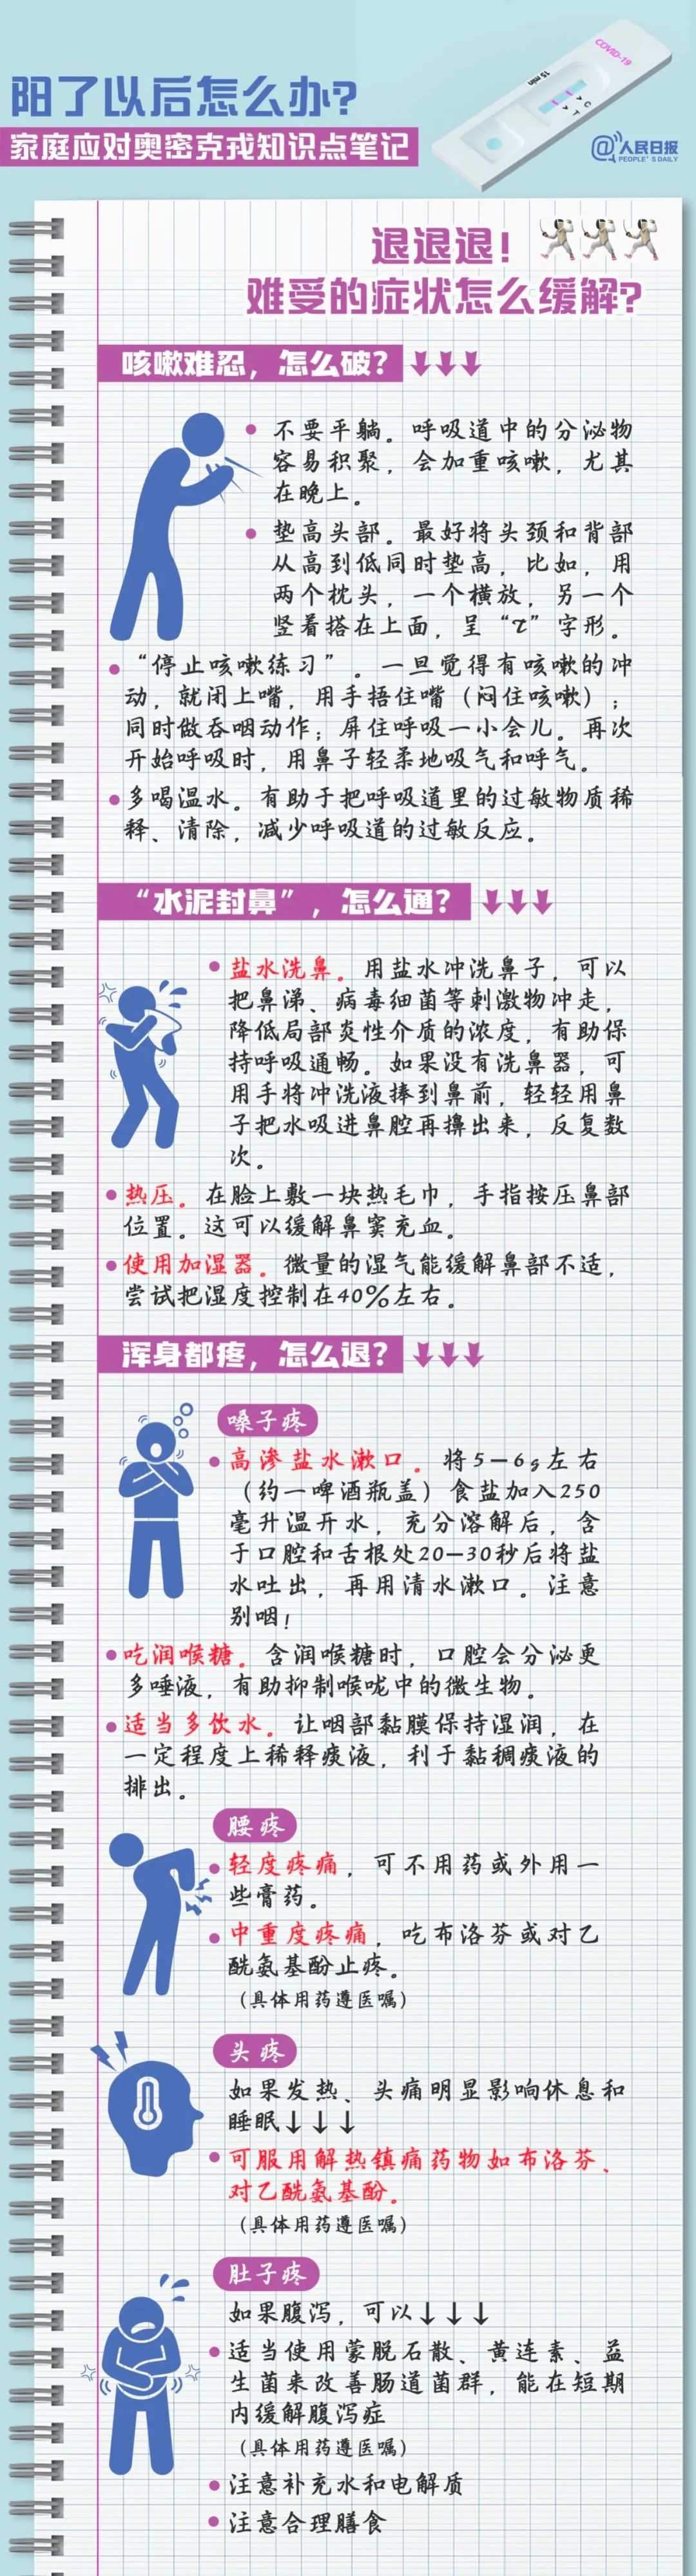 阳了以后怎么办?
家庭应对奥密克戎知识点笔记
COVID-19
15 min
C
T
@人民日报
PEOPLE'S DAILY
退退退!
难受的症状怎么缓解?
咳嗽难忍，怎么破?
不要平躺。呼吸道中的分泌物
容易积聚，会加重咳嗽，尤其
在晚上。
垫高头部。最好将头颈和背部
从高到低同时垫高，比如，用
两个枕头，一个横放，另一个
竖着搭在上面，呈“t”字形。
“停止咳嗽练习”。一旦觉得有咳嗽的冲
动，就闭上嘴，用手捂住嘴（闷住咳嗽）；
同时做吞咽动作；屏住呼吸一小会儿。再次
开始呼吸时，用鼻子轻柔地吸气和呼气。
多喝温水。有助于把呼吸道里的过敏物质稀
释、清除，减少呼吸道的过敏反应。
“水泥封鼻”，怎么通?
盐水洗鼻。用盐水冲洗鼻子，可以
把鼻涕、病毒细菌等刺激物冲走，
降低局部炎性介质的浓度，有助保
持呼吸通畅。如果没有洗鼻器，可
用手将冲洗液捧到鼻前，轻轻用鼻
子把水吸进鼻腔再擤出来，反复数
次。
热压。在脸上敷一块热毛巾，手指按压鼻部
位置。这可以缓解鼻窦充血。
使用加湿器。微量的湿气能缓解鼻部不适，
尝试把湿度控制在40%左右。
浑身都疼，怎么退?
嗓子疼
高渗盐水漱口。将5—6g左右
（约一啤酒瓶盖）食盐加入250
毫升温开水，充分溶解后，含
于口腔和舌根处20—30秒后将盐
水吐出，再用清水漱口。注意
别咽!
吃润喉糖。含润喉糖时，口腔会分泌更
多唾液，有助抑制喉咙中的微生物。
适当多饮水。让咽部黏膜保持湿润，在
一定程度上稀释痰液，利于黏稠痰液的
排出。
腰疼
轻度疼痛，可不用药或外用一
些膏药。
中重度疼痛，吃布洛芬或对乙
酰氨基酚止疼。
（具体用药遵医嘱）
头疼
如果发热、头痛明显影响休息和
睡眠↓↓↓
可服用解热镇痛药物如布洛芬、
对乙酰氨基酚。
（具体用药遵医嘱）
肚子疼
如果腹泻，可以↓↓↓
适当使用蒙脱石散、黄连素、益
生菌来改善肠道菌群，能在短期
内缓解腹泻症
（具体用药遵医嘱）
注意补充水和电解质
注意合理膳食